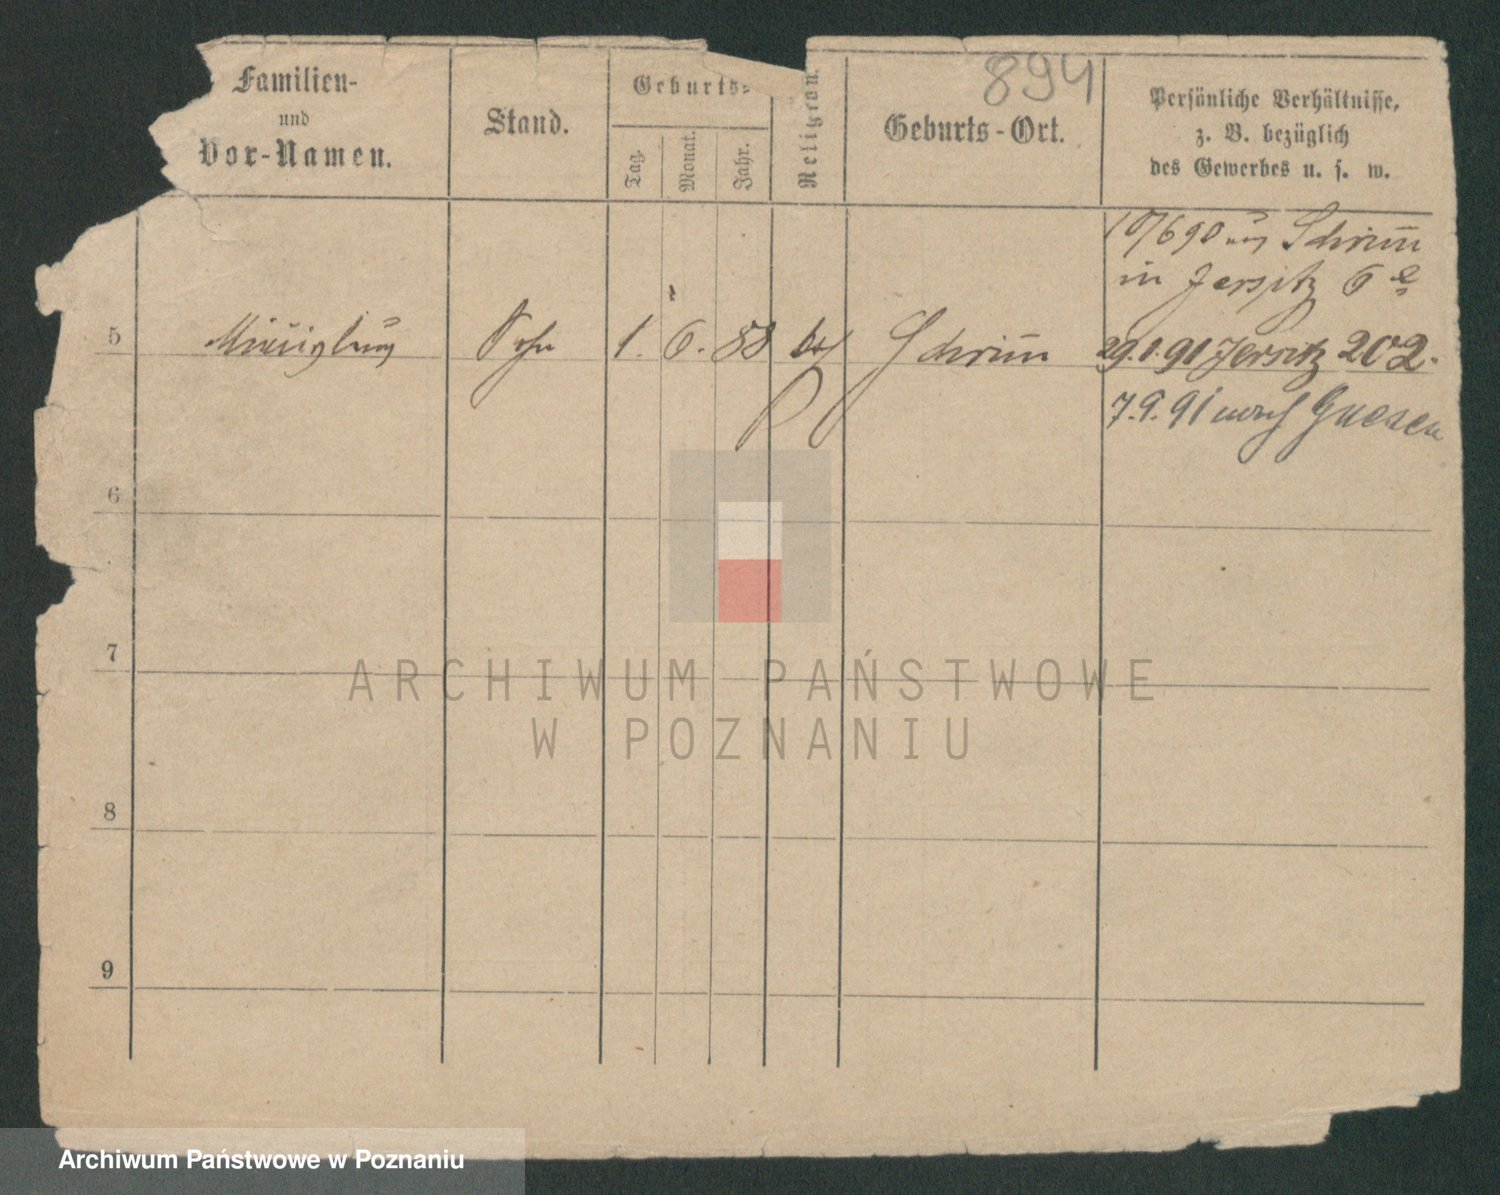 894
Familien-
und
Vor-Namen.
Stand.
Geburts-
Tag.
Monat.
Jahr.
Religion.
Geburts-Ort.
Persönliche Verhältnisse,
z. B. bezüglich
des Gewerbes u. s. w.
10/6 90 aus Schrimm
in Jersitz 6
5 Sohn 1. 6. 88 Schrimm 29.1.91 Jersitz 202.
7.9.91 nach Gnesen
6
7
8
9
ARCHIWUM PAŃSTWOWE
W POZNANIU
Archiwum Państwowe w Poznaniu